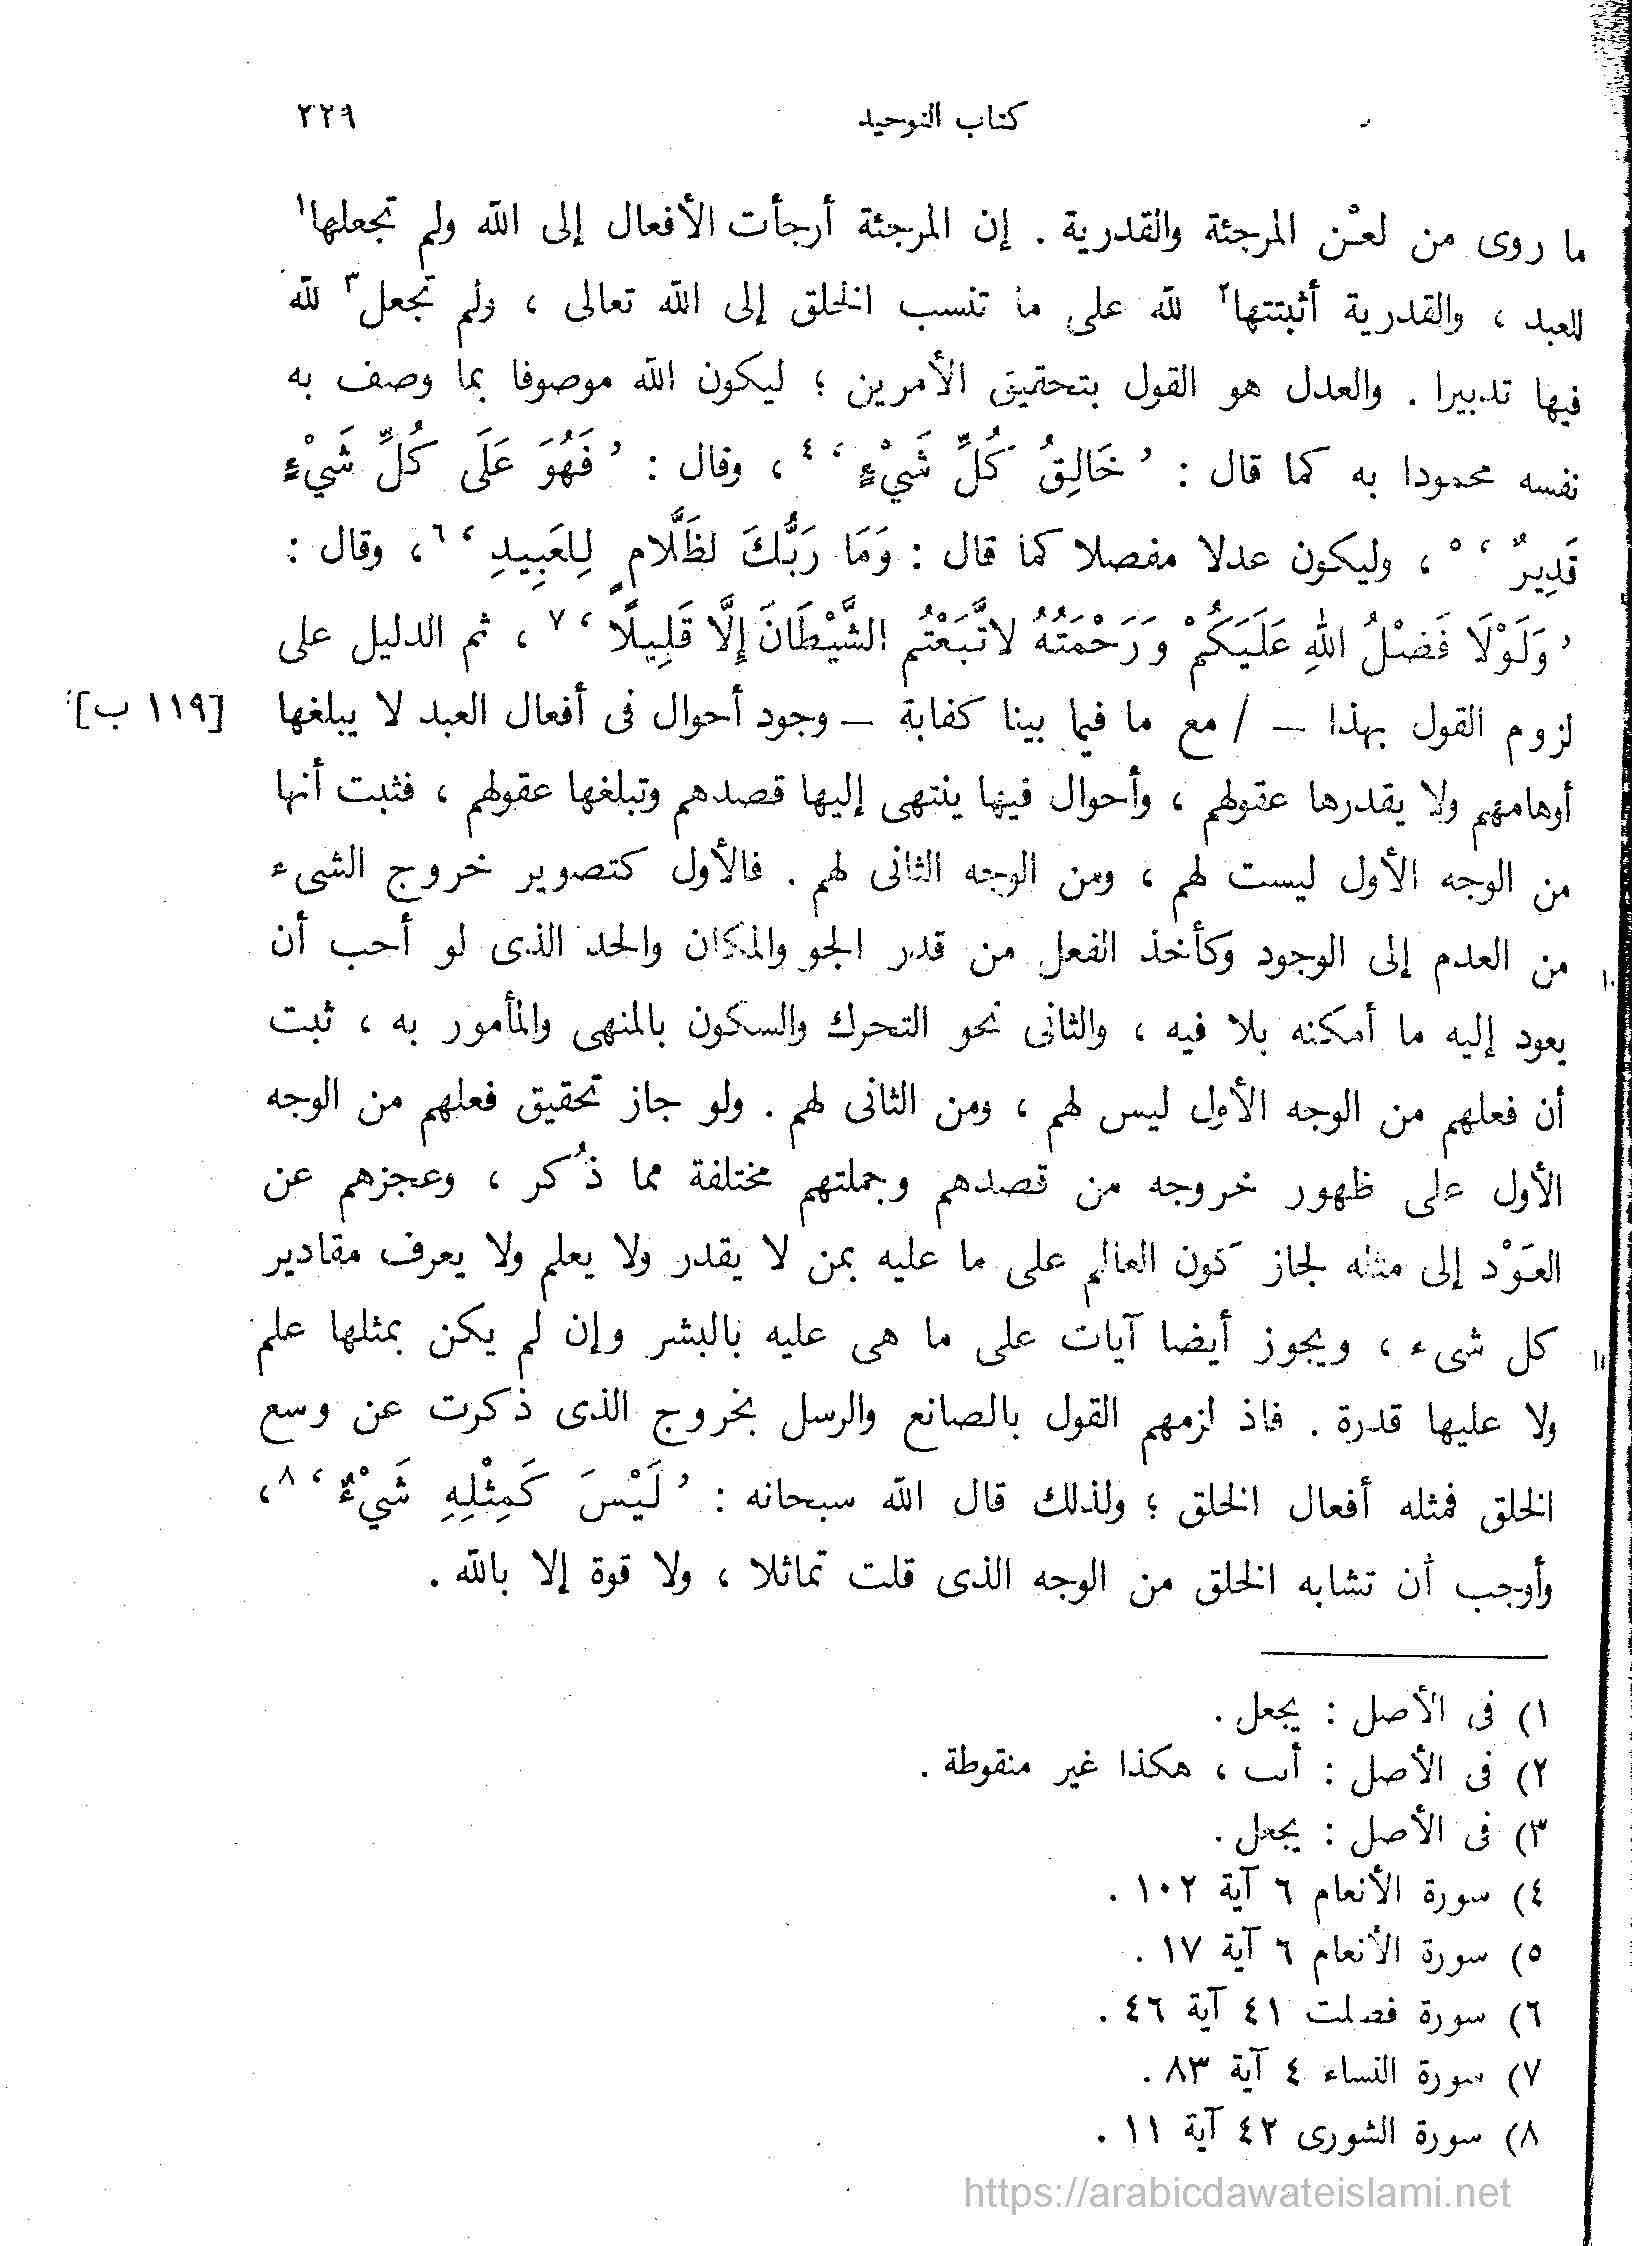 كتاب التوحيد ٢٢٩
ما روى من لعْن المرجئة والقدرية . إن المرجئة أرجأت الأفعال إلى الله ولم تجعلها١
للعبد ، والقدرية أثبتتها٢ لله على ما تنسب الخلق إلى الله تعالى ، ولم تجعل٣ لله
فيها تدبيرا . والعدل هو القول بتحقيق الأمرين ؛ ليكون الله موصوفا بما وصف به
نفسه محمودا به كما قال : ’ خَالِقُ كُلِّ شَيْءٍ ‘ ٤ ، وقال : ’ فَهُوَ عَلَى كُلِّ شَيْءٍ
قَدِيرٌ ‘ ٥ ، وليكون عدلا مفصلا كما قال : وَمَا رَبُّكَ لظَلَّامٍ لِلعَبِيدِ ‘ ٦ ، وقال :
’ وَلَوْلَا فَضْلُ اللهِ عَلَيَكُمْ وَرَحْمَتُهُ لاتَّبَعْتُم الشَّيْطَانَ إِلَّا قَلِيلًا ‘ ٧ ، ثم الدليل على
لزوم القول بهذا – / مع ما فيما بينا كفاية – وجود أحوال فى أفعال العبد لا يبلغها [١١٩ ب]
أوهامهم ولا يقدرها عقولهم ، وأحوال فيها ينتهى إليها قصدهم وتبلغها عقولهم ، فثبت أنها
من الوجه الأول ليست لهم ، ومن الوجه الثانى لهم . فالأول كتصوير خروج الشىء
١٠ من العدم إلى الوجود وكأخذ الفعل من قدر الجو والمكان والحد الذى لو أحب أن
يعود إليه ما أمكنه بلا فيه ، والثانى نحو التحرك والسكون بالمنهى والمأمور به ، ثبت
أن فعلهم من الوجه الأول ليس لهم ، ومن الثانى لهم . ولو جاز تحقيق فعلهم من الوجه
الأول على ظهور خروجه من قصدهم وجملتهم مختلفة مما ذُكر ، وعجزهم عن
العَوْد إلى مثله لجاز كون العالم على ما عليه بمن لا يقدر ولا يعلم ولا يعرف مقادير
كل شىء ، ويجوز أيضا آيات على ما هى عليه بالبشر وإن لم يكن بمثلها علم
ولا عليها قدرة . فاذ لزمهم القول بالصانع والرسل بخروج الذى ذكرت عن وسع
الخلق فمثله أفعال الخلق ؛ ولذلك قال الله سبحانه : ’ لَيْسَ كَمِثْلِهِ شَيْءٌ ‘ ٨ ،
وأوجب أن تشابه الخلق من الوجه الذى قلت تماثلا ، ولا قوة إلا بالله .
١) فى الأصل : يجعل .
٢) فى الأصل : أںٮ ، هكذا غير منقوطة .
٣) فى الأصل : يجعل .
٤) سورة الأنعام ٦ آية ١٠٢ .
٥) سورة الأنعام ٦ آية ١٧ .
٦) سورة فصلت ٤١ آية ٤٦ .
٧) سورة النساء ٤ آية ٨٣ .
٨) سورة الشورى ٤٢ آية ١١ .
https://arabicdawateislami.net